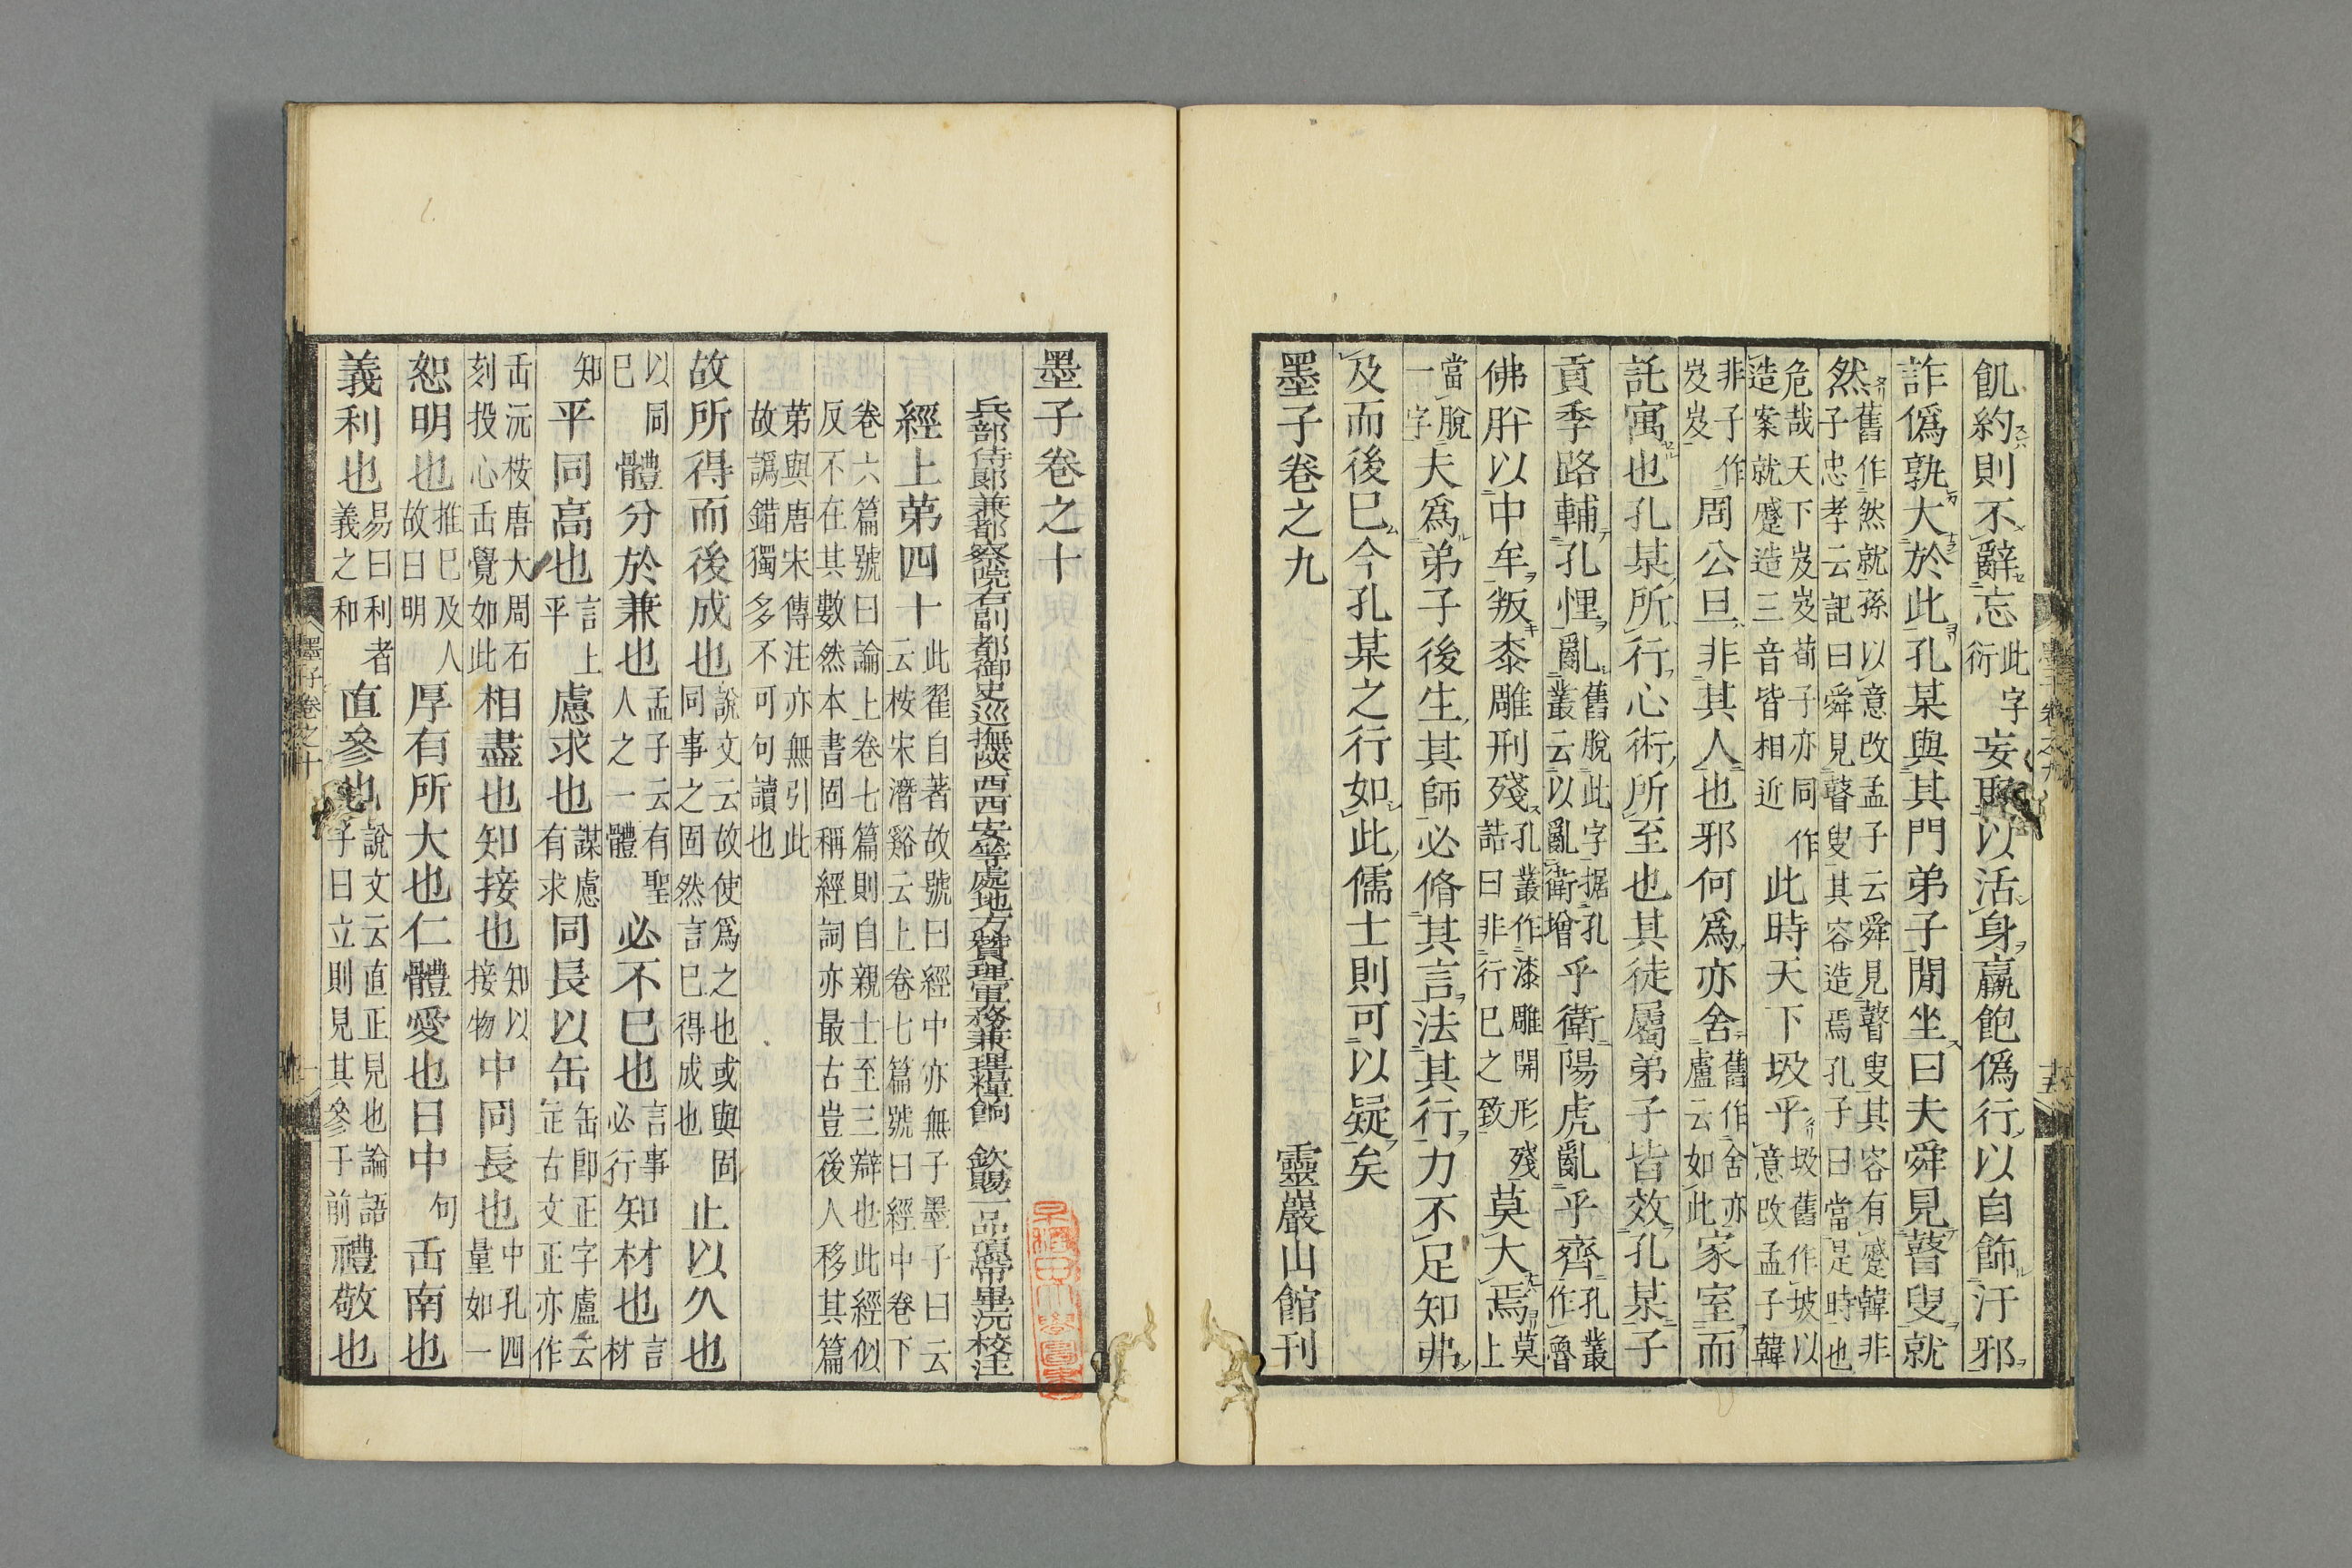 飢約則不辭忘此字衍妄取以活身羸飽僞行以自飾汙邪
詐僞孰大於此孔某與其門弟子閒坐曰夫舜見瞽叟就
然舊作然就孫以意改孟子云舜見瞽叟其容有蹙韓非子忠孝云記曰舜見瞽叟其容造焉孔子曰當是時也
危哉天下岌岌荀子亦同作造案就蹙造三音皆相近此時天下圾乎圾舊作坡以意改孟子韓
非子作岌岌周公旦非其人也邪何爲亦舍舊作舍亦盧云如此家室而
託寓也孔某所行心術所至也其徒屬弟子皆效孔某子
貢季路輔孔悝亂舊脫此字据孔叢云以亂衛增乎衛陽虎亂乎齊孔叢作魯
佛肸以中牟叛桼雕刑殘孔叢作漆雕開形殘詰曰非行巳之致莫大焉莫上
當脫一字夫爲弟子後生其師必脩其言法其行力不足知弗
及而後巳今孔某之行如此儒士則可以疑矣
墨子卷之九 靈巖山館刊
墨子卷之九 十五
墨子卷之十
兵部侍郎兼都察院右副都御史巡撫陝西西安等處地方贊理軍務兼理糧餉 欽賜一品頂帶畢沅校注
經上第四十此翟自著故號曰經中亦無子墨子曰云云桉宋濳谿云上卷七篇號曰經中卷下
卷六篇號曰論上卷七篇則自親士至三辯也此經似反不在其數然本書固稱經詞亦最古豈後人移其篇
第與唐宋傳注亦無引此故譌錯獨多不可句讀也
故所得而後成也說文云故使爲之也或與固同事之固然言巳得成也止以久也
以同巳體分於兼也孟子云有聖人之一體必不巳也言事必行知材也言材
知平同高也言上平慮求也謀慮有求同長以缶缶卽正字盧云㱏古文正亦作
缶沅桉唐大周石刻投心缶覺如此相盡也知接也知以接物中同長也中孔四量如一
恕明也推巳及人故曰明厚有所大也仁體愛也日中句缶南也
義利也易曰利者義之和直參也說文云直正見也論語子曰立則見其參于前禮敬也
墨子卷之十 一